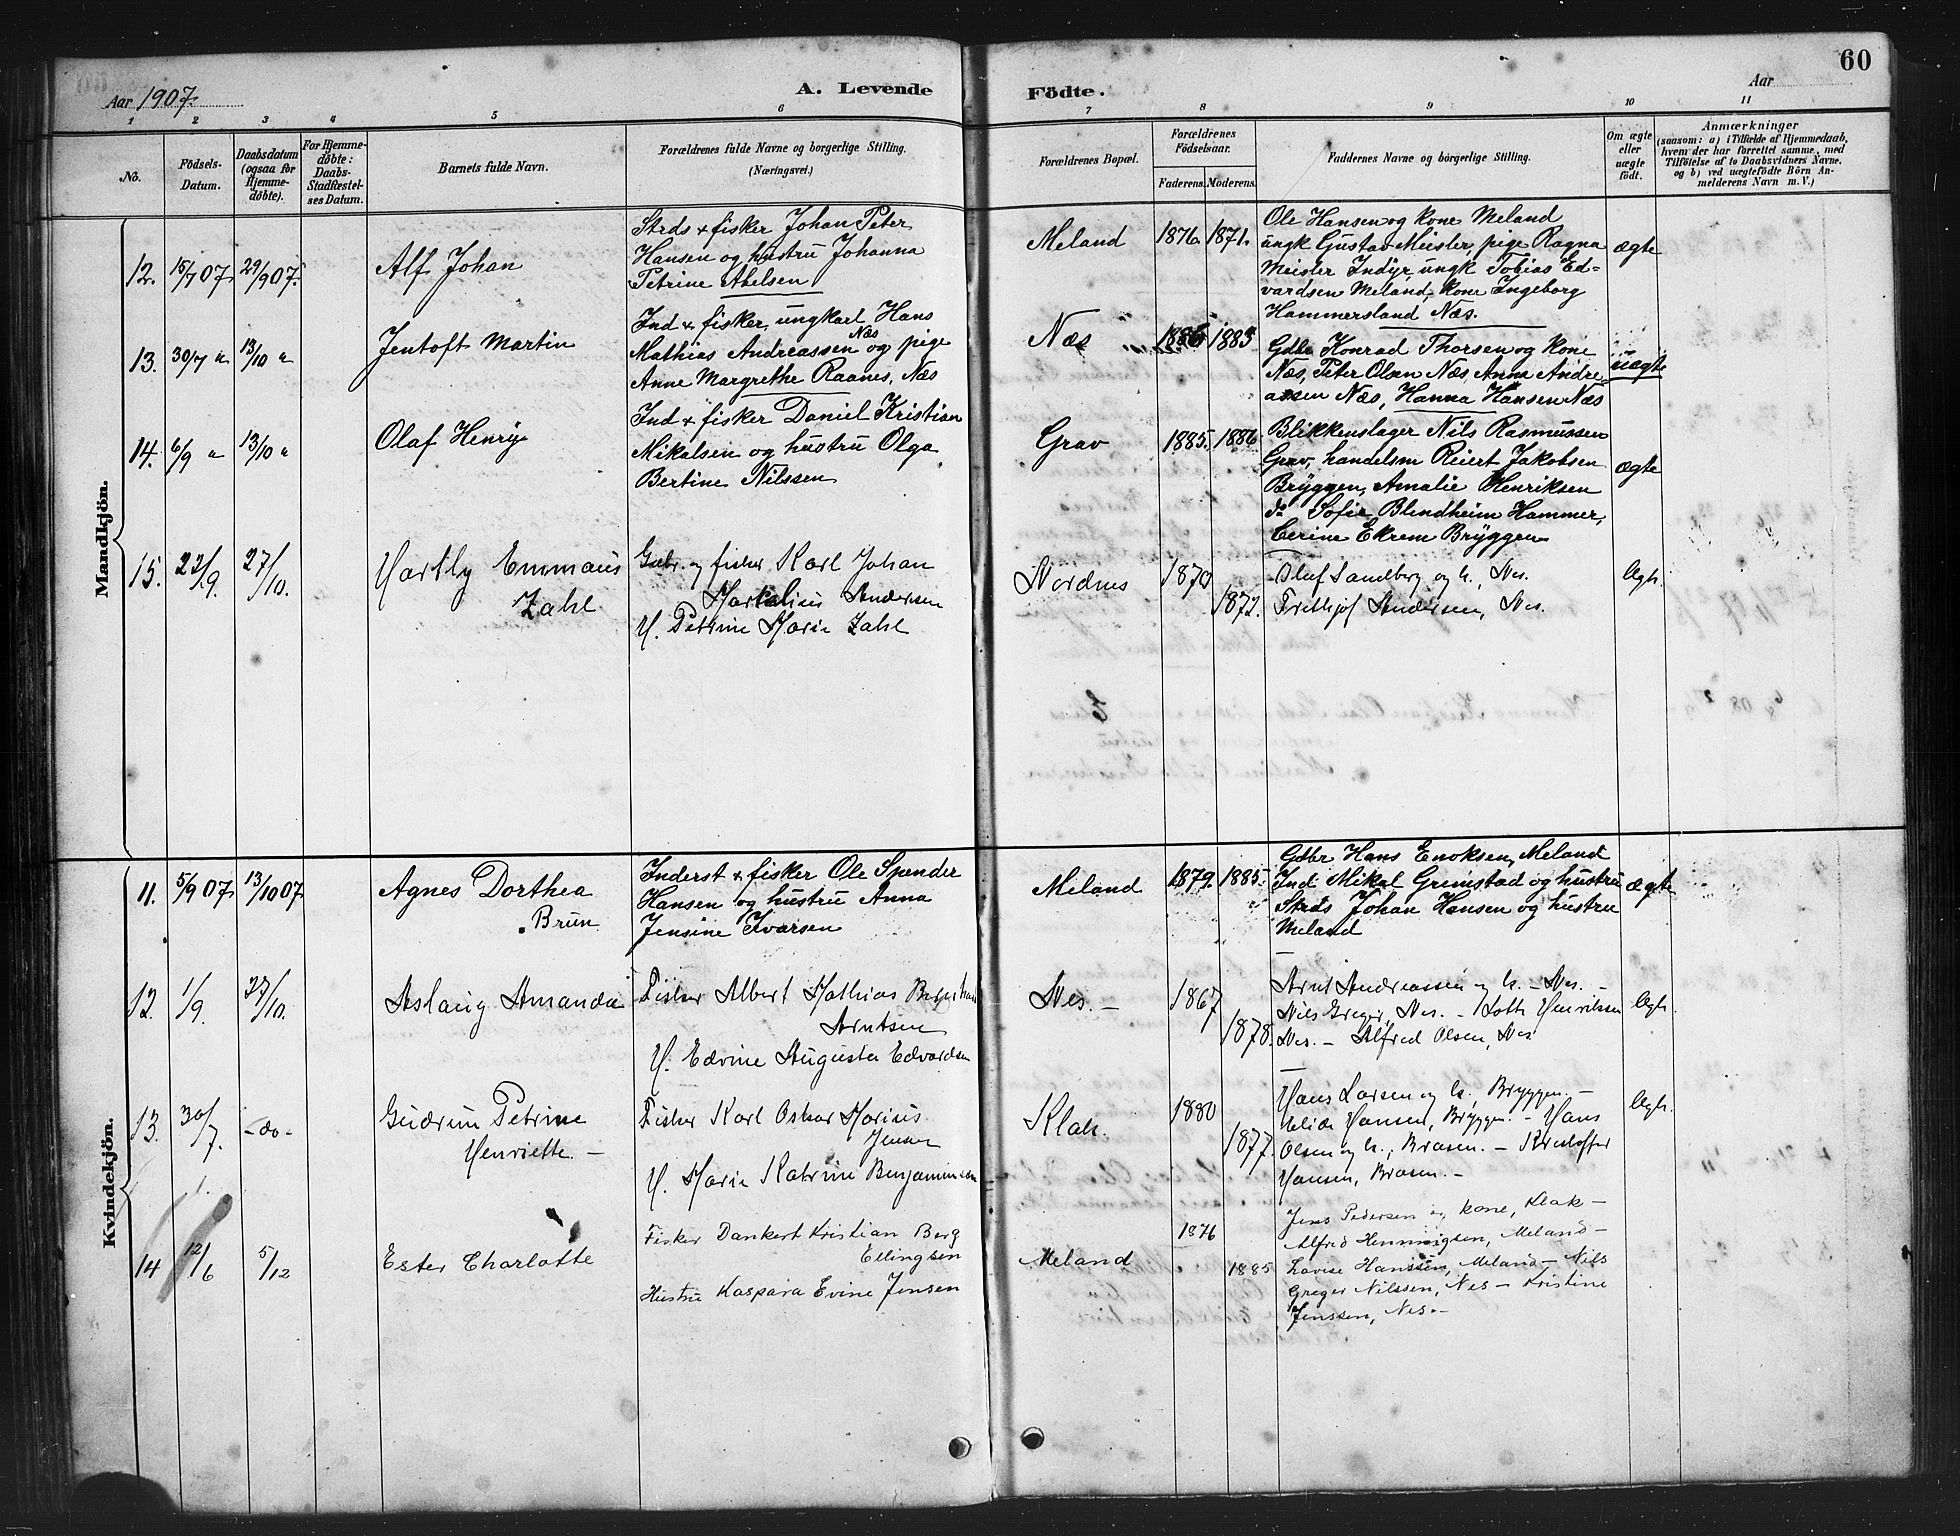 Aar 1907.
A. Levende Födte.
Aar
60
1 2 3 4 5 6 7 8 9 10 11
No.
Födsels-Datum.
Daabsdatum (ogsaa for Hjemme-döbte).
For Hjemme-döbte: Daabs-Stadfæstel-ses Datum.
Barnets fulde Navn.
Forældrenes fulde Navne og borgerlige Stilling.
(Næringsvei.)
Forældrenes Bopæl.
Forældrenes Födselsaar.
Faderens. Moderens.
Faddernes Navne og borgerlige Stilling.
Om ægte eller uægte födt.
Anmærkninger
(saasom: a) i Tilfælde af Hjemmedaab,
hvem der har forrettet samme, med
Tilföielse af to Daabsvidners Navne,
og b) ved uægtefödte Börn An-
melderens Navn m. V.)
Mandkjön.
12. 15/7 07 29/9 07. Alf Johan
Steds + fisker Johan Peter
Hansen og hustru Johanna
Petrine Abelsen
Meland 1876. 1871.
Ole Hansen og kone Meland
ungk Gustav Meisler, pige Ragna
Meisler Indyr, ungk Tobias Ed-
vardsen Meland, kone Ingeborg
Hammersland Næs.
ægte
13. 30/7 " 13/10 " Jentoft Martin
Ind + fisker, ungkarl Hans
Mathias Andreassen Næs og pige
Anne Margrethe Raanes, Næs
Næs 1883
Gdbr Konrad Thorsen og kone
Næs, Peter Olsen Næs, Anna Andre-
assen Næs, Hanna Hansen Næs
uægte
14. 6/9 " 13/10 " Olaf Henry
Ind + fisker Daniel Kristian
Mikalsen og hustru Olga
Bertine Nilssen
Grav 1885. 1886
Blikkenslager Nils Rasmussen
Grav, handelsm Reiert Jakobsen
Bryggen, Amalie Henriksen
do Sofie Blendheim Hammer,
Cerine Ekrem Bryggen
ægte
15. 23/9. 27/10. Hartly Emmaus
Zahl
Gbr. og fisker Karl Johan
Markalius Andersen
H. Petrine Marie Zahl
Nordnes 1872.
Oluf Sandberg og h., Nes.
Frithjof Andersen, Nes.
Ægt.
Kvindekjön.
11. 5/9 07 13/10 07 Agnes Dorthea
Brun
Inderst + fisker Ole Spender
Hansen og hustru Anna
Jensine Ivarsen
Meland 1879. 1885.
Gdbr Hans Enoksen, Meland
Ind Mikal Grimstad og hustru
Steds Johan Hansen og hustru
Meland
ægte
12. 1/9. 27/10. Aslaug Amanda
Fisker Albert Mathias
Arntsen
H. Edvine Augusta Edvardsen
Nes. – 1867 1878.
Arnt Andreassen og h. – Nes. –
Nils Greger, Nes. – Lotte Henriksen
Nes. – Alfred Olsen, Nes
Ægt.
13. 30/7. –do– Gudrun Petrine
Henriette. –
Fisker Karl Oskar Marius
Jensen
H. Marie Katrine Benjaminsen
Klak. 1880 1877.
Hans Larsen og h., Bryggen. –
Hansen, Bryggen. – Hans
Olsen og h., Braasen. – Kristoffer
Hansen, Braasen. –
Ægt.
14 12/6 5/12 Ester Charlotte
Fisker Dankert Kristian Berg
Ellingsen
Hustru Kaspara Evine Jensen
Meland 1876 1885
Jens Pedersen og kone, Klak –
Alfred Henningsen, Meland –
Lovise Hanssen, Meland – Nils
Greger Nilssen, Nes – Kristine
Jenssen, Nes. –